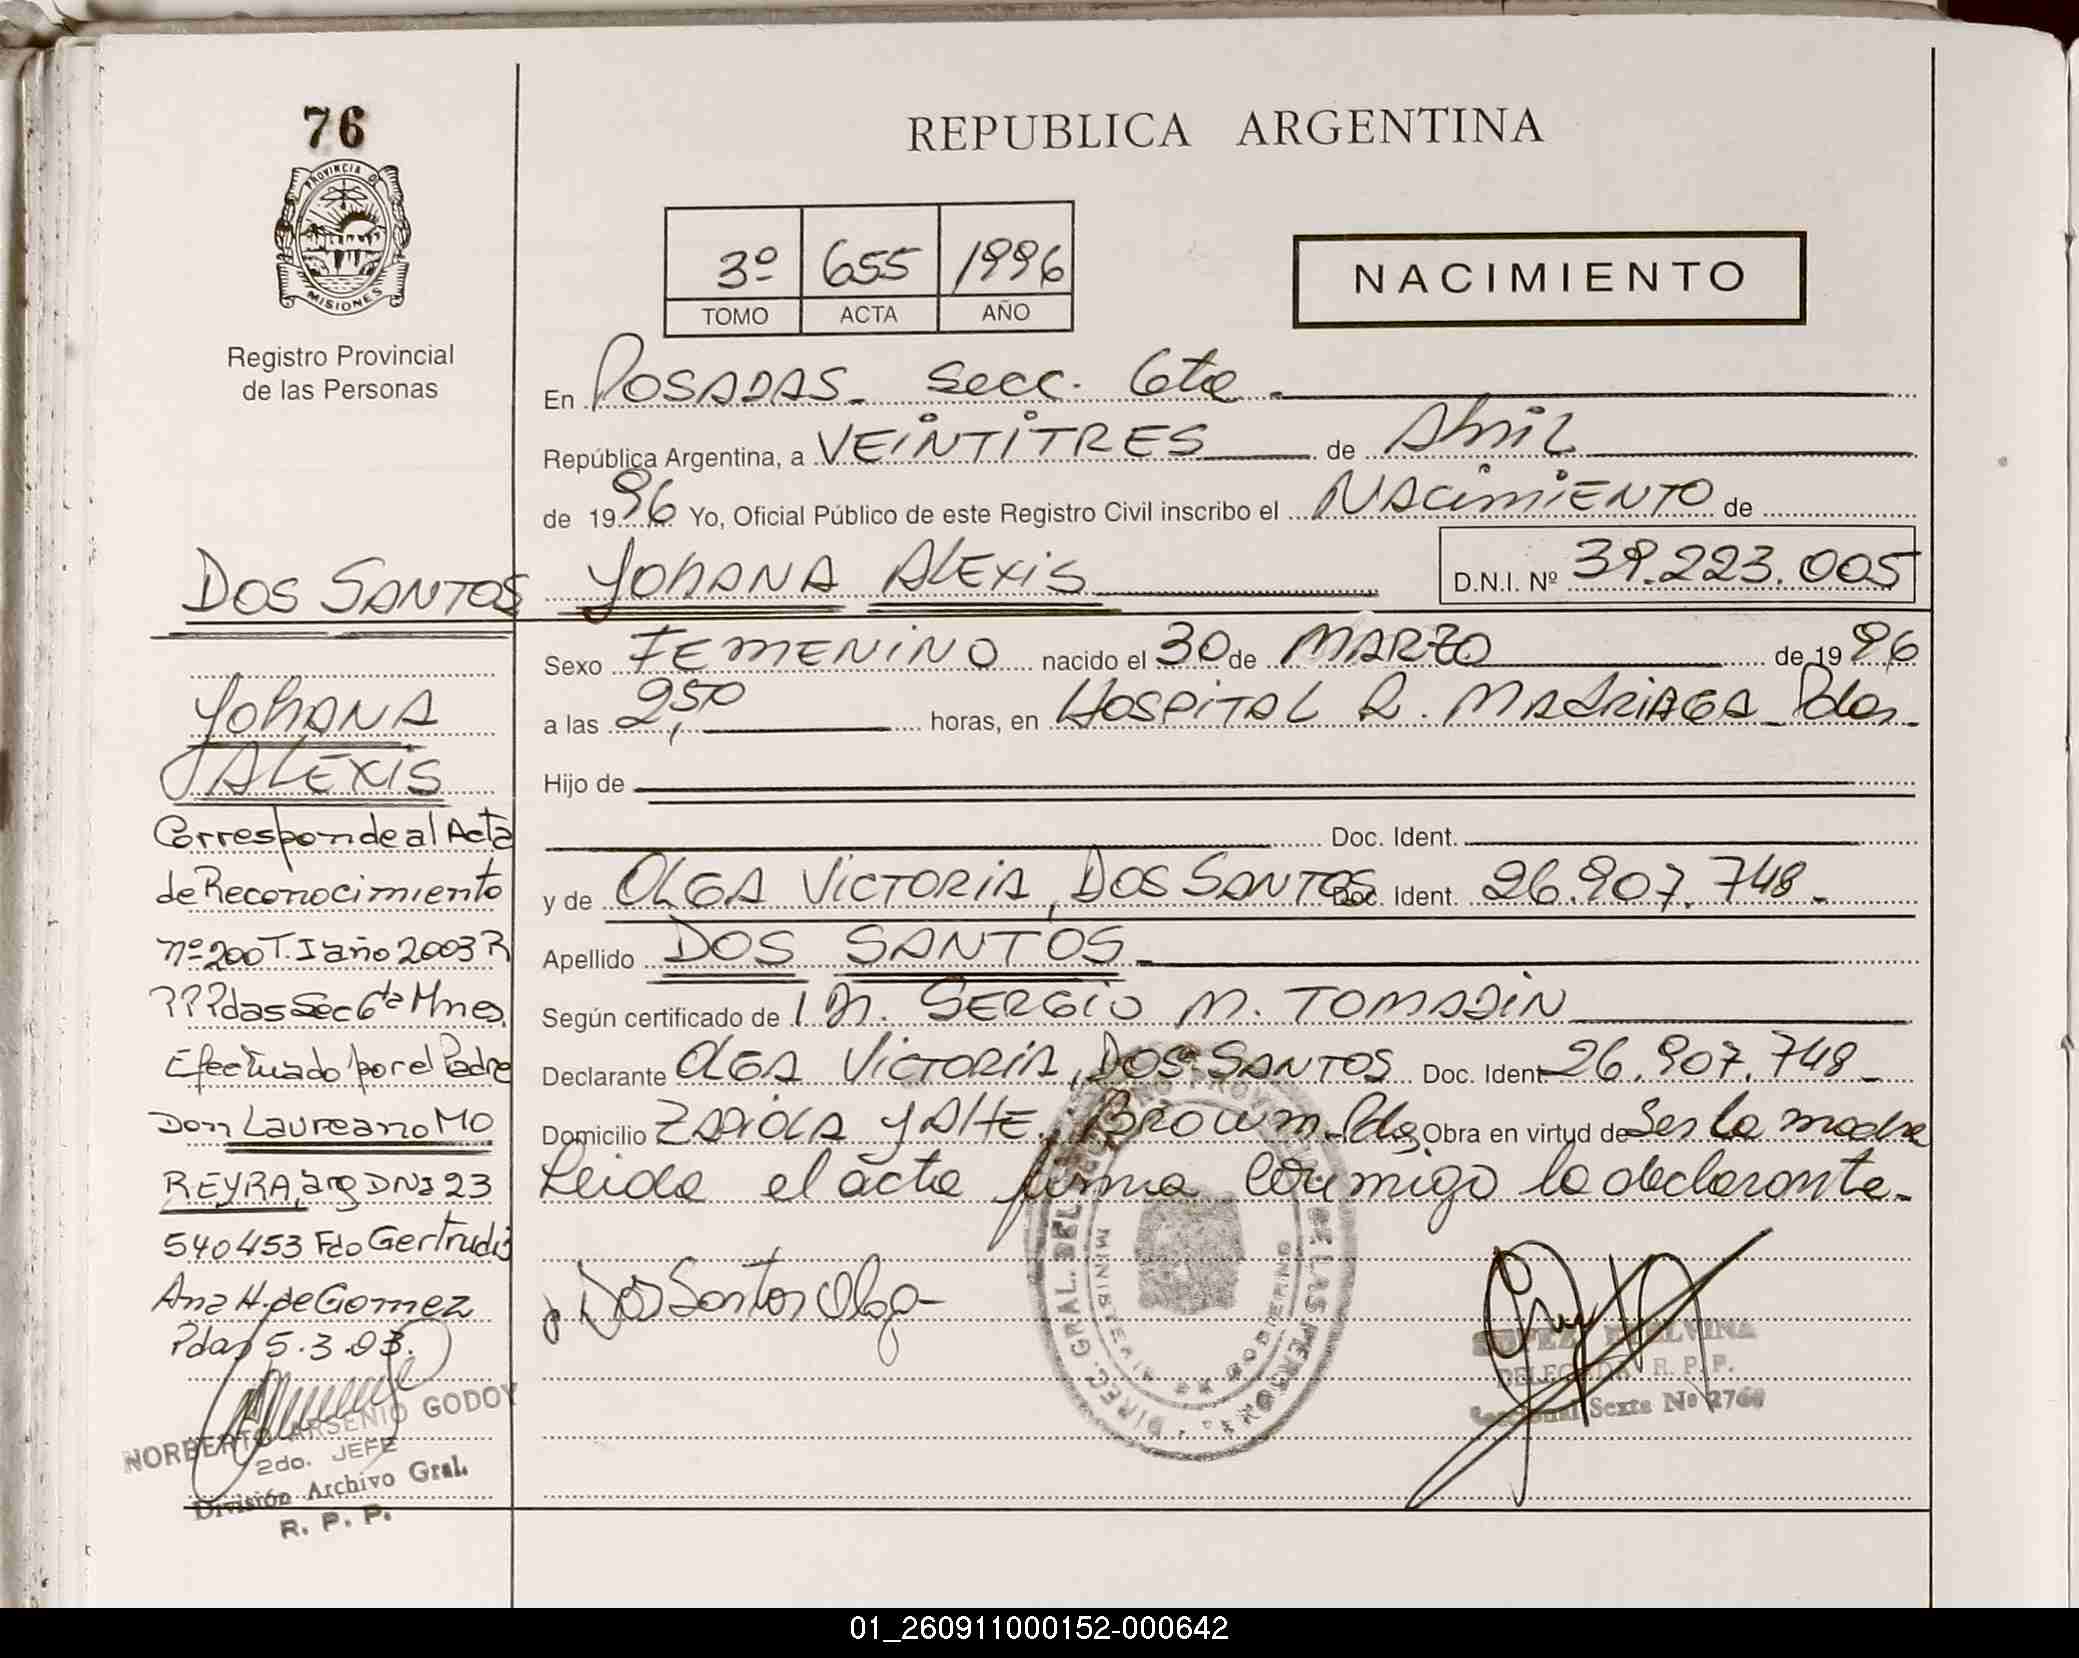 76
PROVINCIA DE
MISIONES
Registro Provincial
de las Personas
REPUBLICA ARGENTINA
3º 655 1996
TOMO ACTA AÑO
NACIMIENTO
En POSADAS. Secc. 6ta.
República Argentina, a VEINTITRES de Abril
de 1996 Yo, Oficial Público de este Registro Civil inscribo el NACIMIENTO de
DOS SANTOS YOHANA ALEXIS D.N.I. Nº 39.223.005
Sexo FEMENINO nacido el 30 de MARZO de 1996
a las 2,50 horas, en HOSPITAL R. MADRIAGA Pdas.
Hijo de
Doc. Ident.
y de OLGA VICTORIA, DOS SANTOS Doc. Ident. 26.907.748.
Apellido DOS SANTOS
Según certificado de SERGIO M. TOMASIN
Declarante OLGA VICTORIA, DOS SANTOS Doc. Ident. 26.907.748.
Domicilio y ALTE. BROWN. Pdas Obra en virtud de Ser la madre
Leida el acta firma conmigo la declarante.
Dos Santos Olga
DIREC. GRAL. DEL LAS PERSONAS
MINISTERIO DE GOBIERNO
DELEGADA R. P. P.
Seccional Sexta Nº 2760
YOHANA
ALEXIS
Corresponde al Acta
de Reconocimiento
nº 200 T. I año 2003 R
PPPdas Sec 6ta Mnes.
Efectuado por el Padre
Don Laureano MO
REYRA, arg DNI 23
540453 Fdo Gertrudis
Ana H. de Gomez
Pdas 5.3.03.
NORBERTO ARSENIO GODOY
2do. JEFE
División Archivo Gral.
R. P. P.
01_260911000152-000642